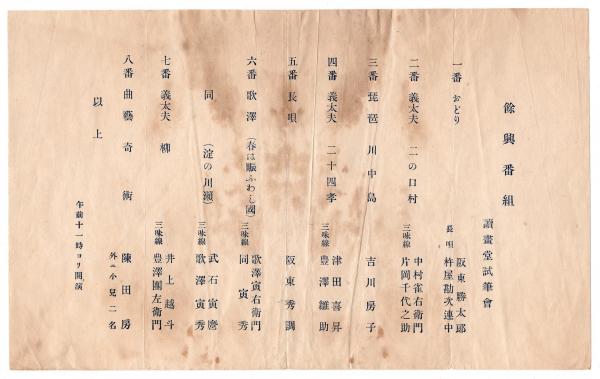 餘興番組
讀畫堂試筆會
一番 おどり 阪東勝太郎
長唄 杵屋勘次連中
二番 義太夫 二の口村 中村雀右衛門
三味線 片岡千代之助
三番 琵琶 川中島 吉川房子
四番 義太夫 二十四孝 津田喜昇
三味線 豊澤雛助
五番 長唄 阪東秀調
六番 歌澤 (春は賑ふわし國) 歌澤寅右衛門
三味線 同 寅秀
同 (淀の川瀬) 武石寅麿
三味線 歌澤寅秀
七番 義太夫 柳 井上越斗
三味線 豊澤團左衛門
八番 曲藝奇術 陳田房
外ニ小兒二名
以上
午前十一時ヨリ開演